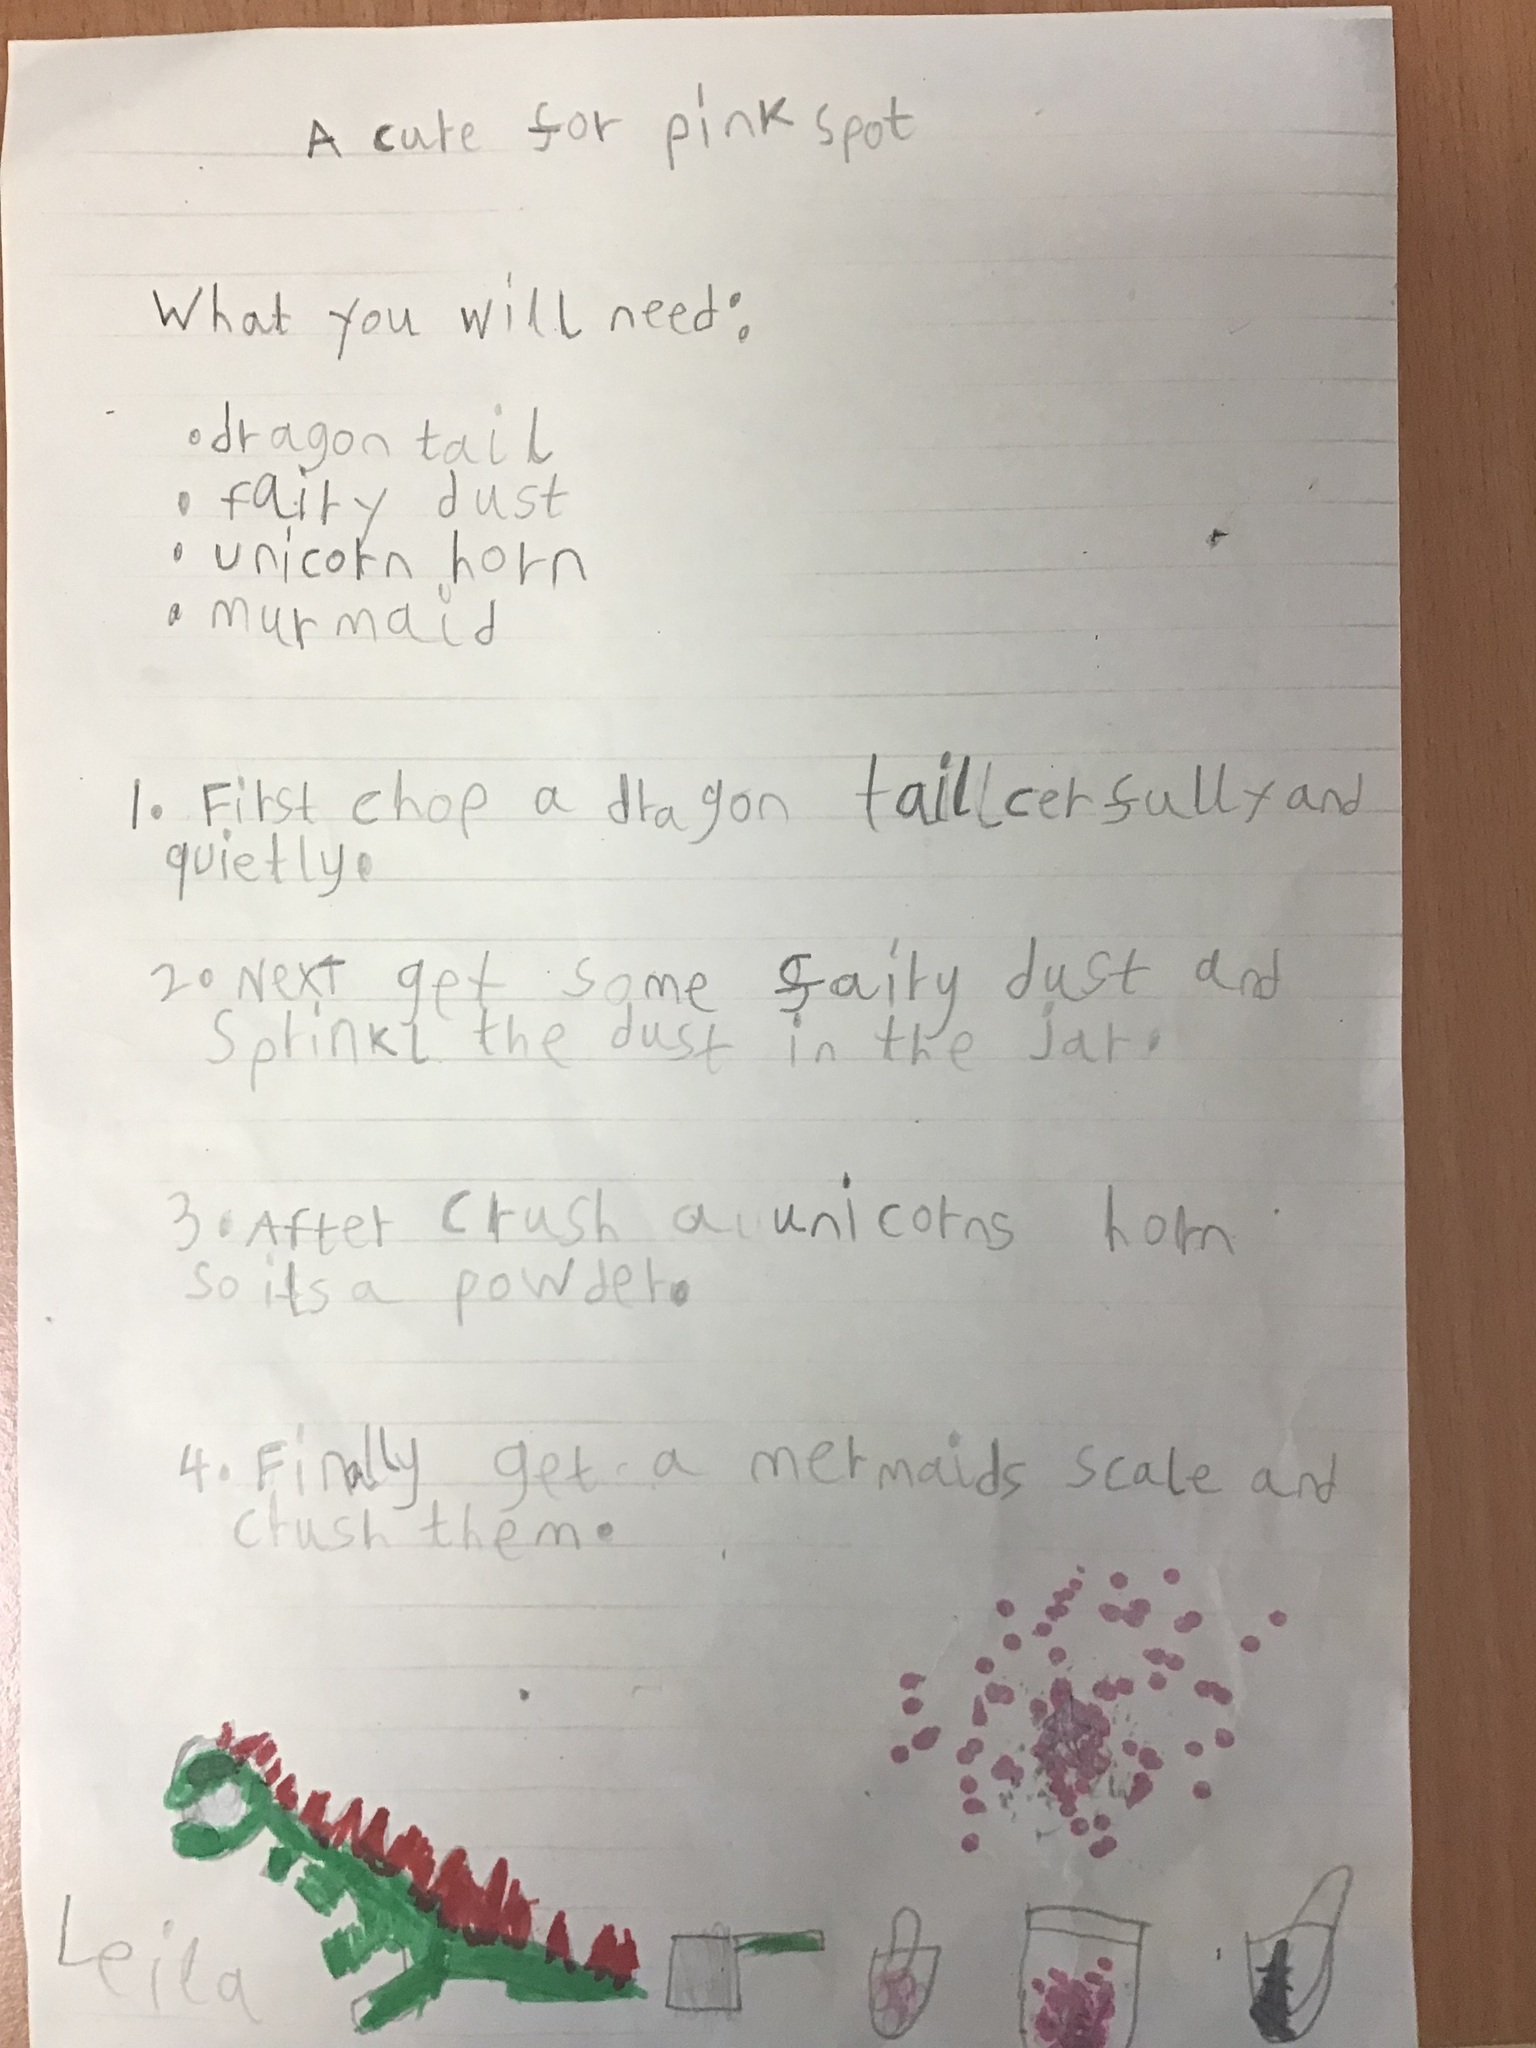 A cure for pink spot
What you will need:
• dragon tail
• fairy dust
• unicorn horn
• murmaid
1. First chop a dragon tail cerfully and
quietly.
2. Next get some fairy dust and
Sprinkl the dust in the jar.
3. After crush a unicorns horn
so its a powder.
4. Finally get a mermaids scale and
crush them.
Leila